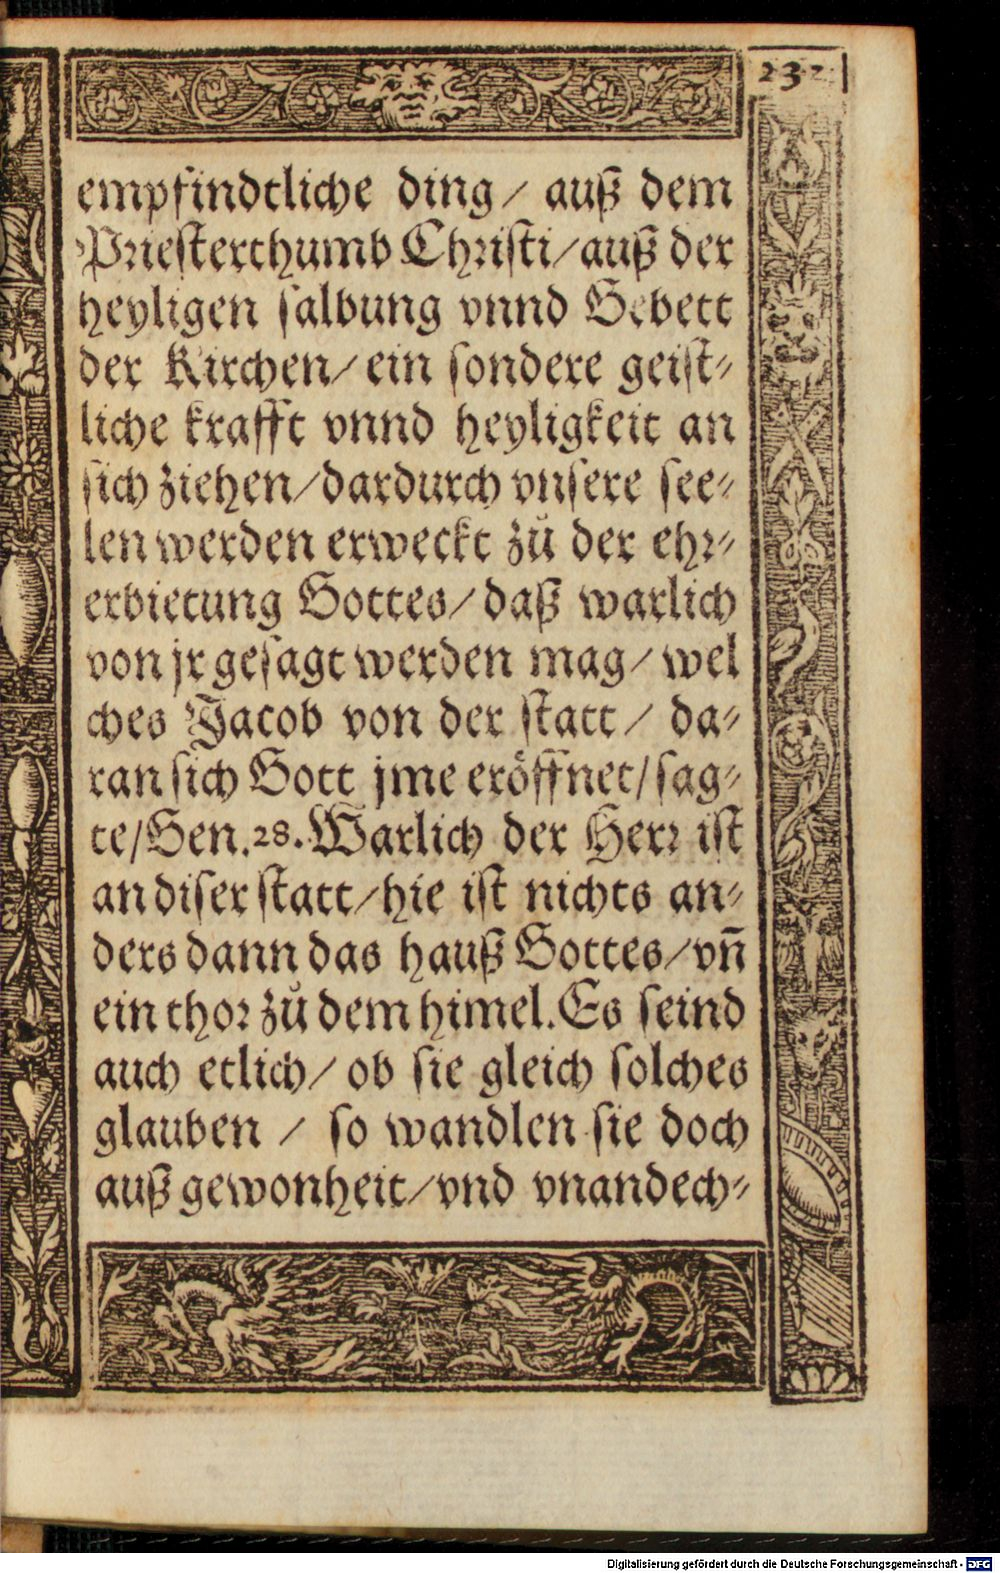 232
empfindtliche ding/ auß dem
Priesterthumb Christi/auß der
heyligen salbung vnnd Gebett
der Kirchen/ ein sondere geist-
liche krafft vnnd heyligkeit an
sich ziehen/dardurch vnsere see-
len werden erweckt zů der ehr-
erbietung Gottes/ daß warlich
von jr gesagt werden mag/ wel
ches Jacob von der statt/ da-
ran sich Gott jme eröffnet/sag-
te/Gen.28.Warlich der Herr ist
an diser statt/hie ist nichts an-
ders dann das hauß Gottes/vñ
ein thor zů dem himel.Es seind
auch etlich/ ob sie gleich solches
glauben / so wandlen sie doch
auß gewonheit/vnd vnandech-
Digitalisierung gefördert durch die Deutsche Forschungsgemeinschaft - DFG